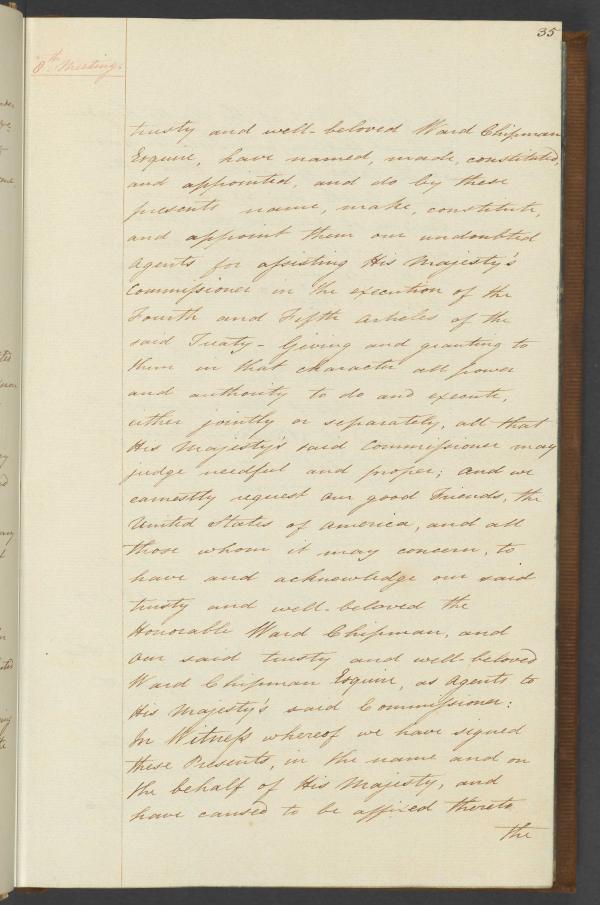 35
8th Meeting.
trusty and well-beloved Ward Chipman
Esquire, have named, made, constituted,
and appointed, and do by these
presents name, make, constitute,
and appoint them our undoubted
Agents for assisting His Majesty's
Commissioner in the execution of the
Fourth and Fifth Articles of the
said Treaty - Giving and granting to
them in that character all power
and authority to do and execute,
either jointly or separately, all that
His Majesty's said Commissioner may
judge needful and proper; And we
earnestly request our good Friends, the
United States of America, and all
those whom it may concern, to
have and acknowledge our said
trusty and well-beloved the
Honorable Ward Chipman, and
our said trusty and well-beloved
Ward Chipman Esquire, as Agents to
His Majesty's said Commissioner:
In Witness whereof we have signed
these Presents, in the name and on
the behalf of His Majesty, and
have caused to be affixed thereto
the